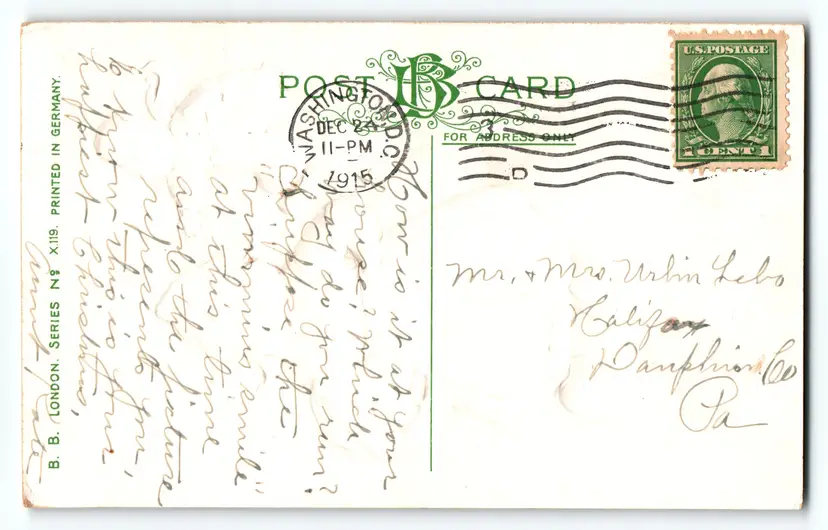 POST CARD
BB
FOR ADDRESS ONLY
U.S. POSTAGE
1 CENT 1
WASHINGTON, D.C.
DEC 24
11-PM
1915
3
D
Mr. & Mrs. Urbin Lebo
Halifax
Dauphin Co
Pa
How is it at your
house? Which
way do you run?
Suppose the
"winning smile"
at this time
and the picture
represents you,
know this is your
happiest Christmas,
Aunt Kate
B. B. LONDON. SERIES No X119. PRINTED IN GERMANY.